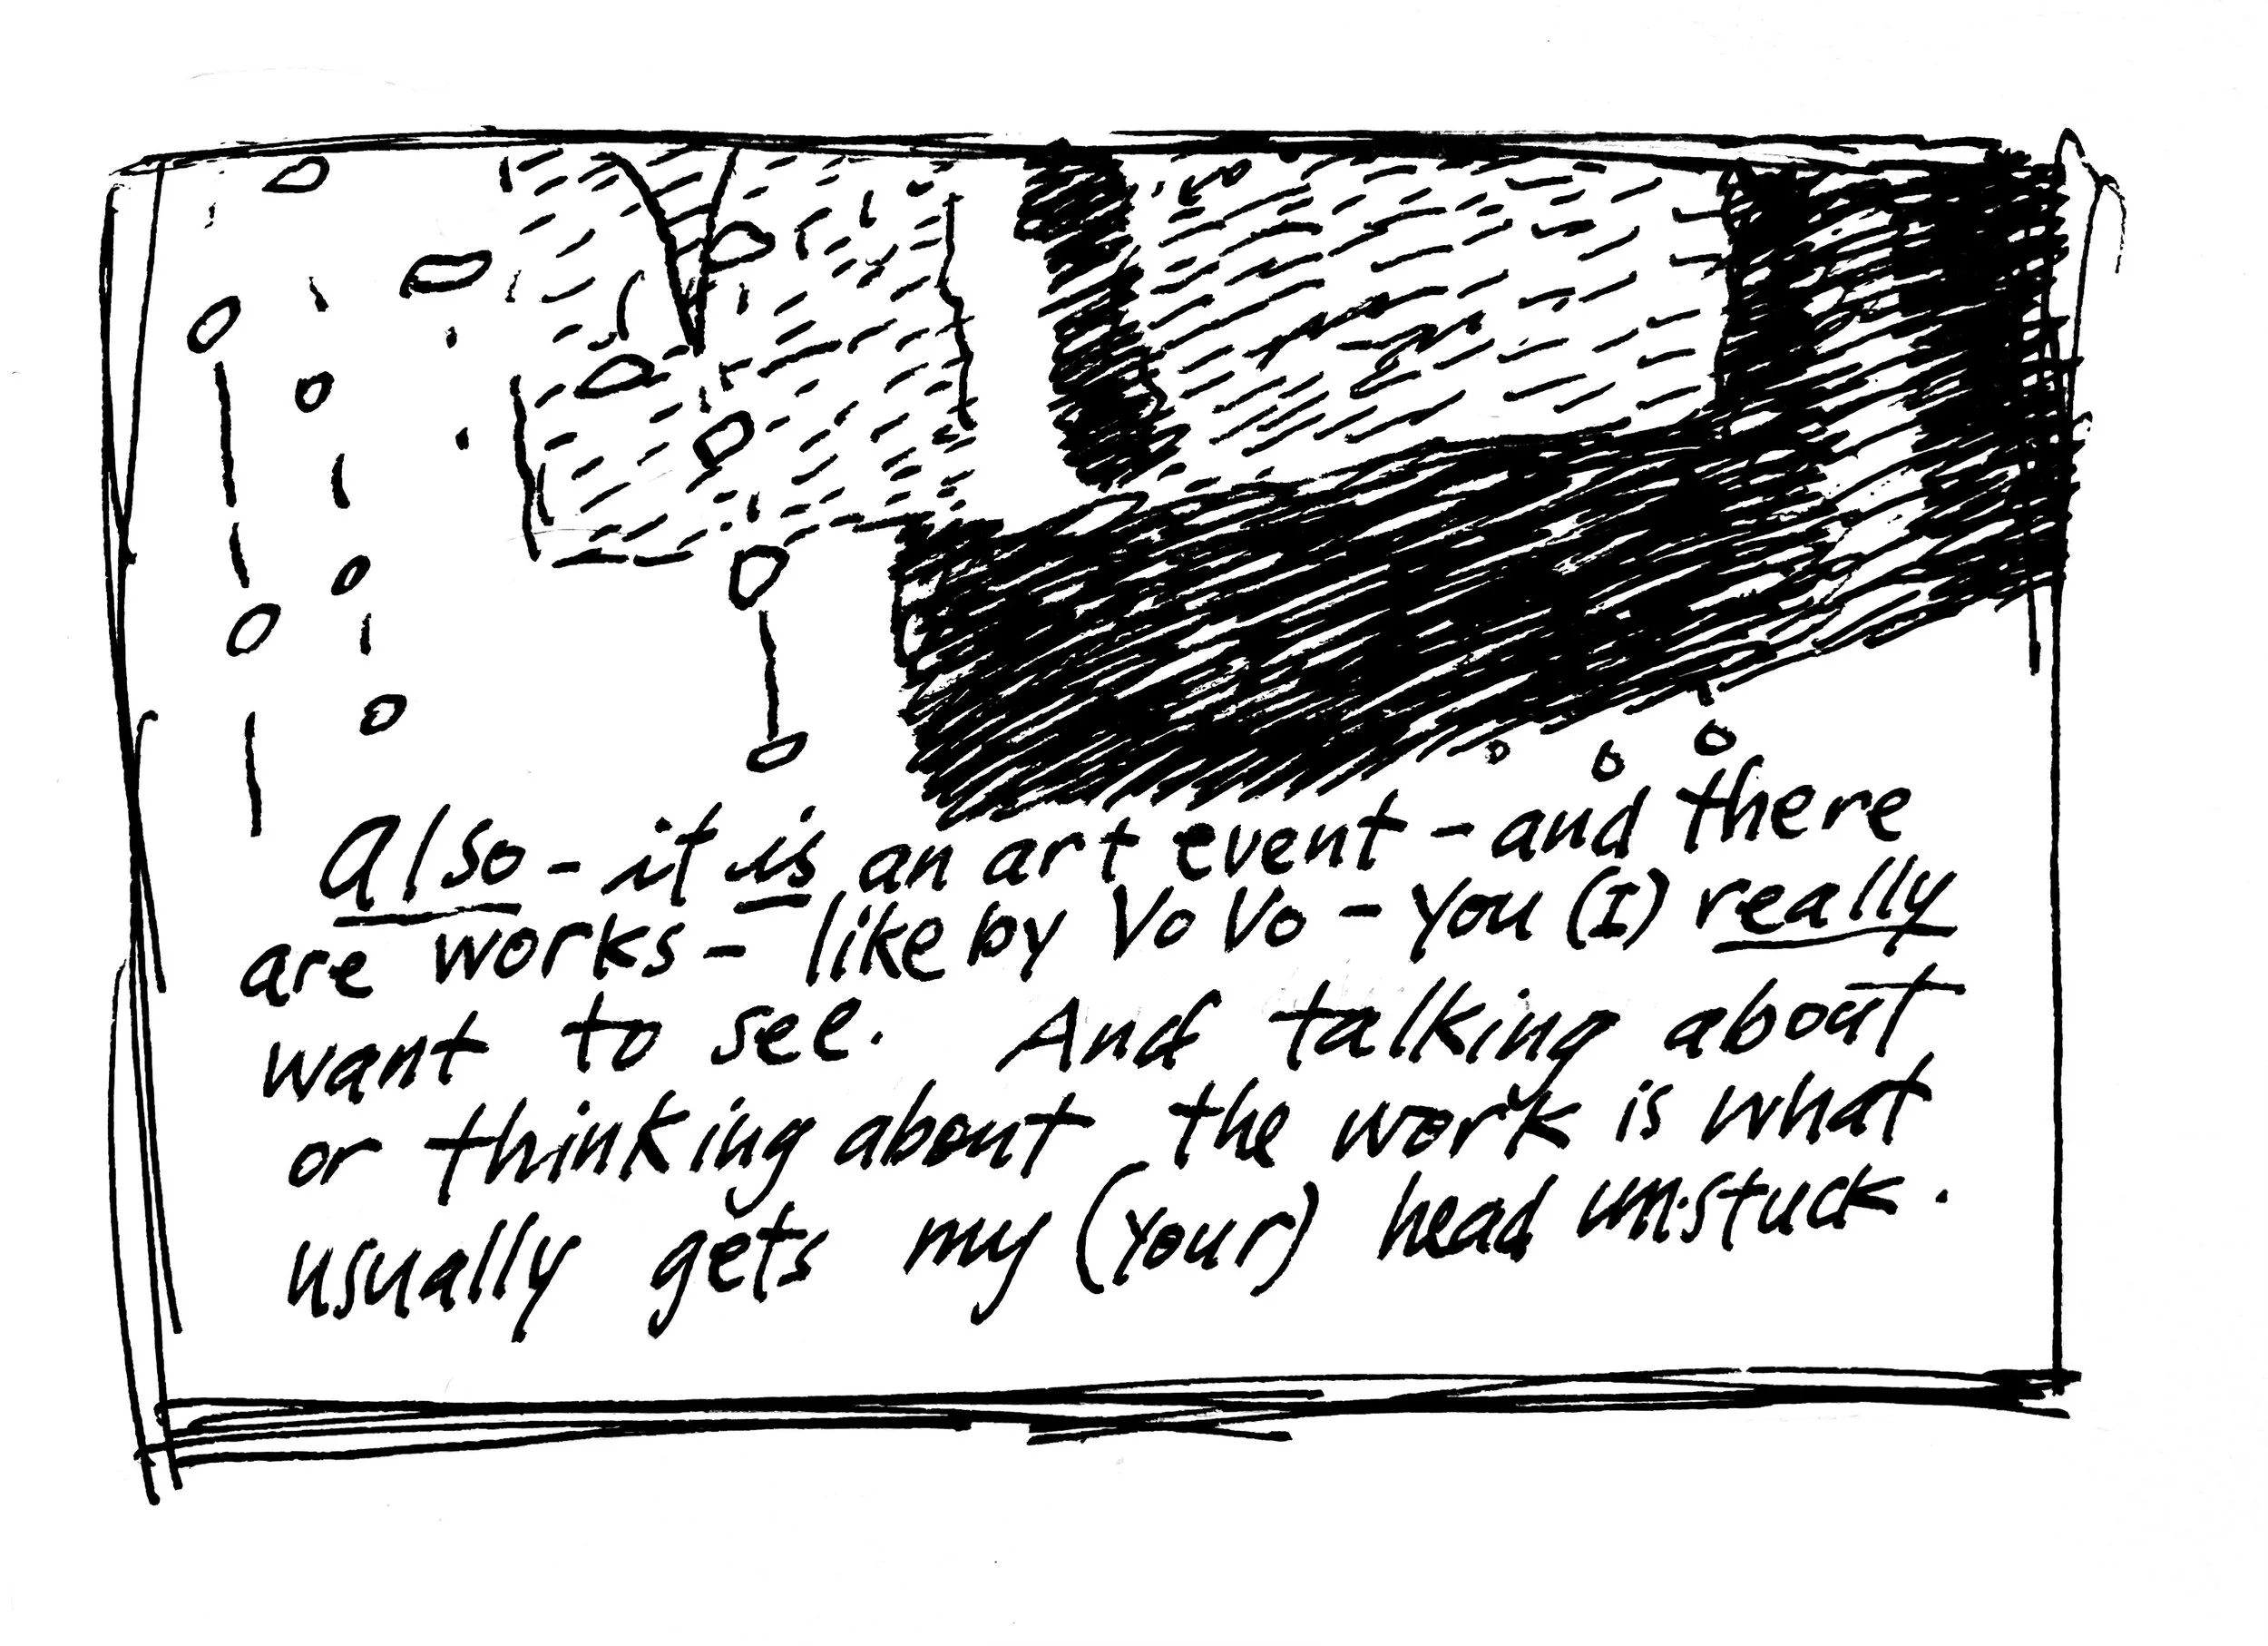 Also - it is an art event - and there
are works - like by Vo Vo - you (I) really
want to see. And talking about
or thinking about the work is what
usually gets my (your) head un-stuck.